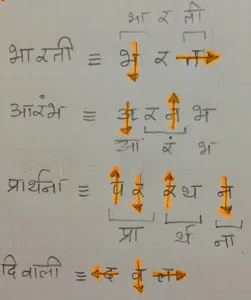 भा र ती
भारती ≡ भ र त
आरंभ ≡ अ र न भ
आ रं भ
प्रार्थना ≡ प र र थ न
प्रा र्थ ना
दिवाली ≡ द व ल